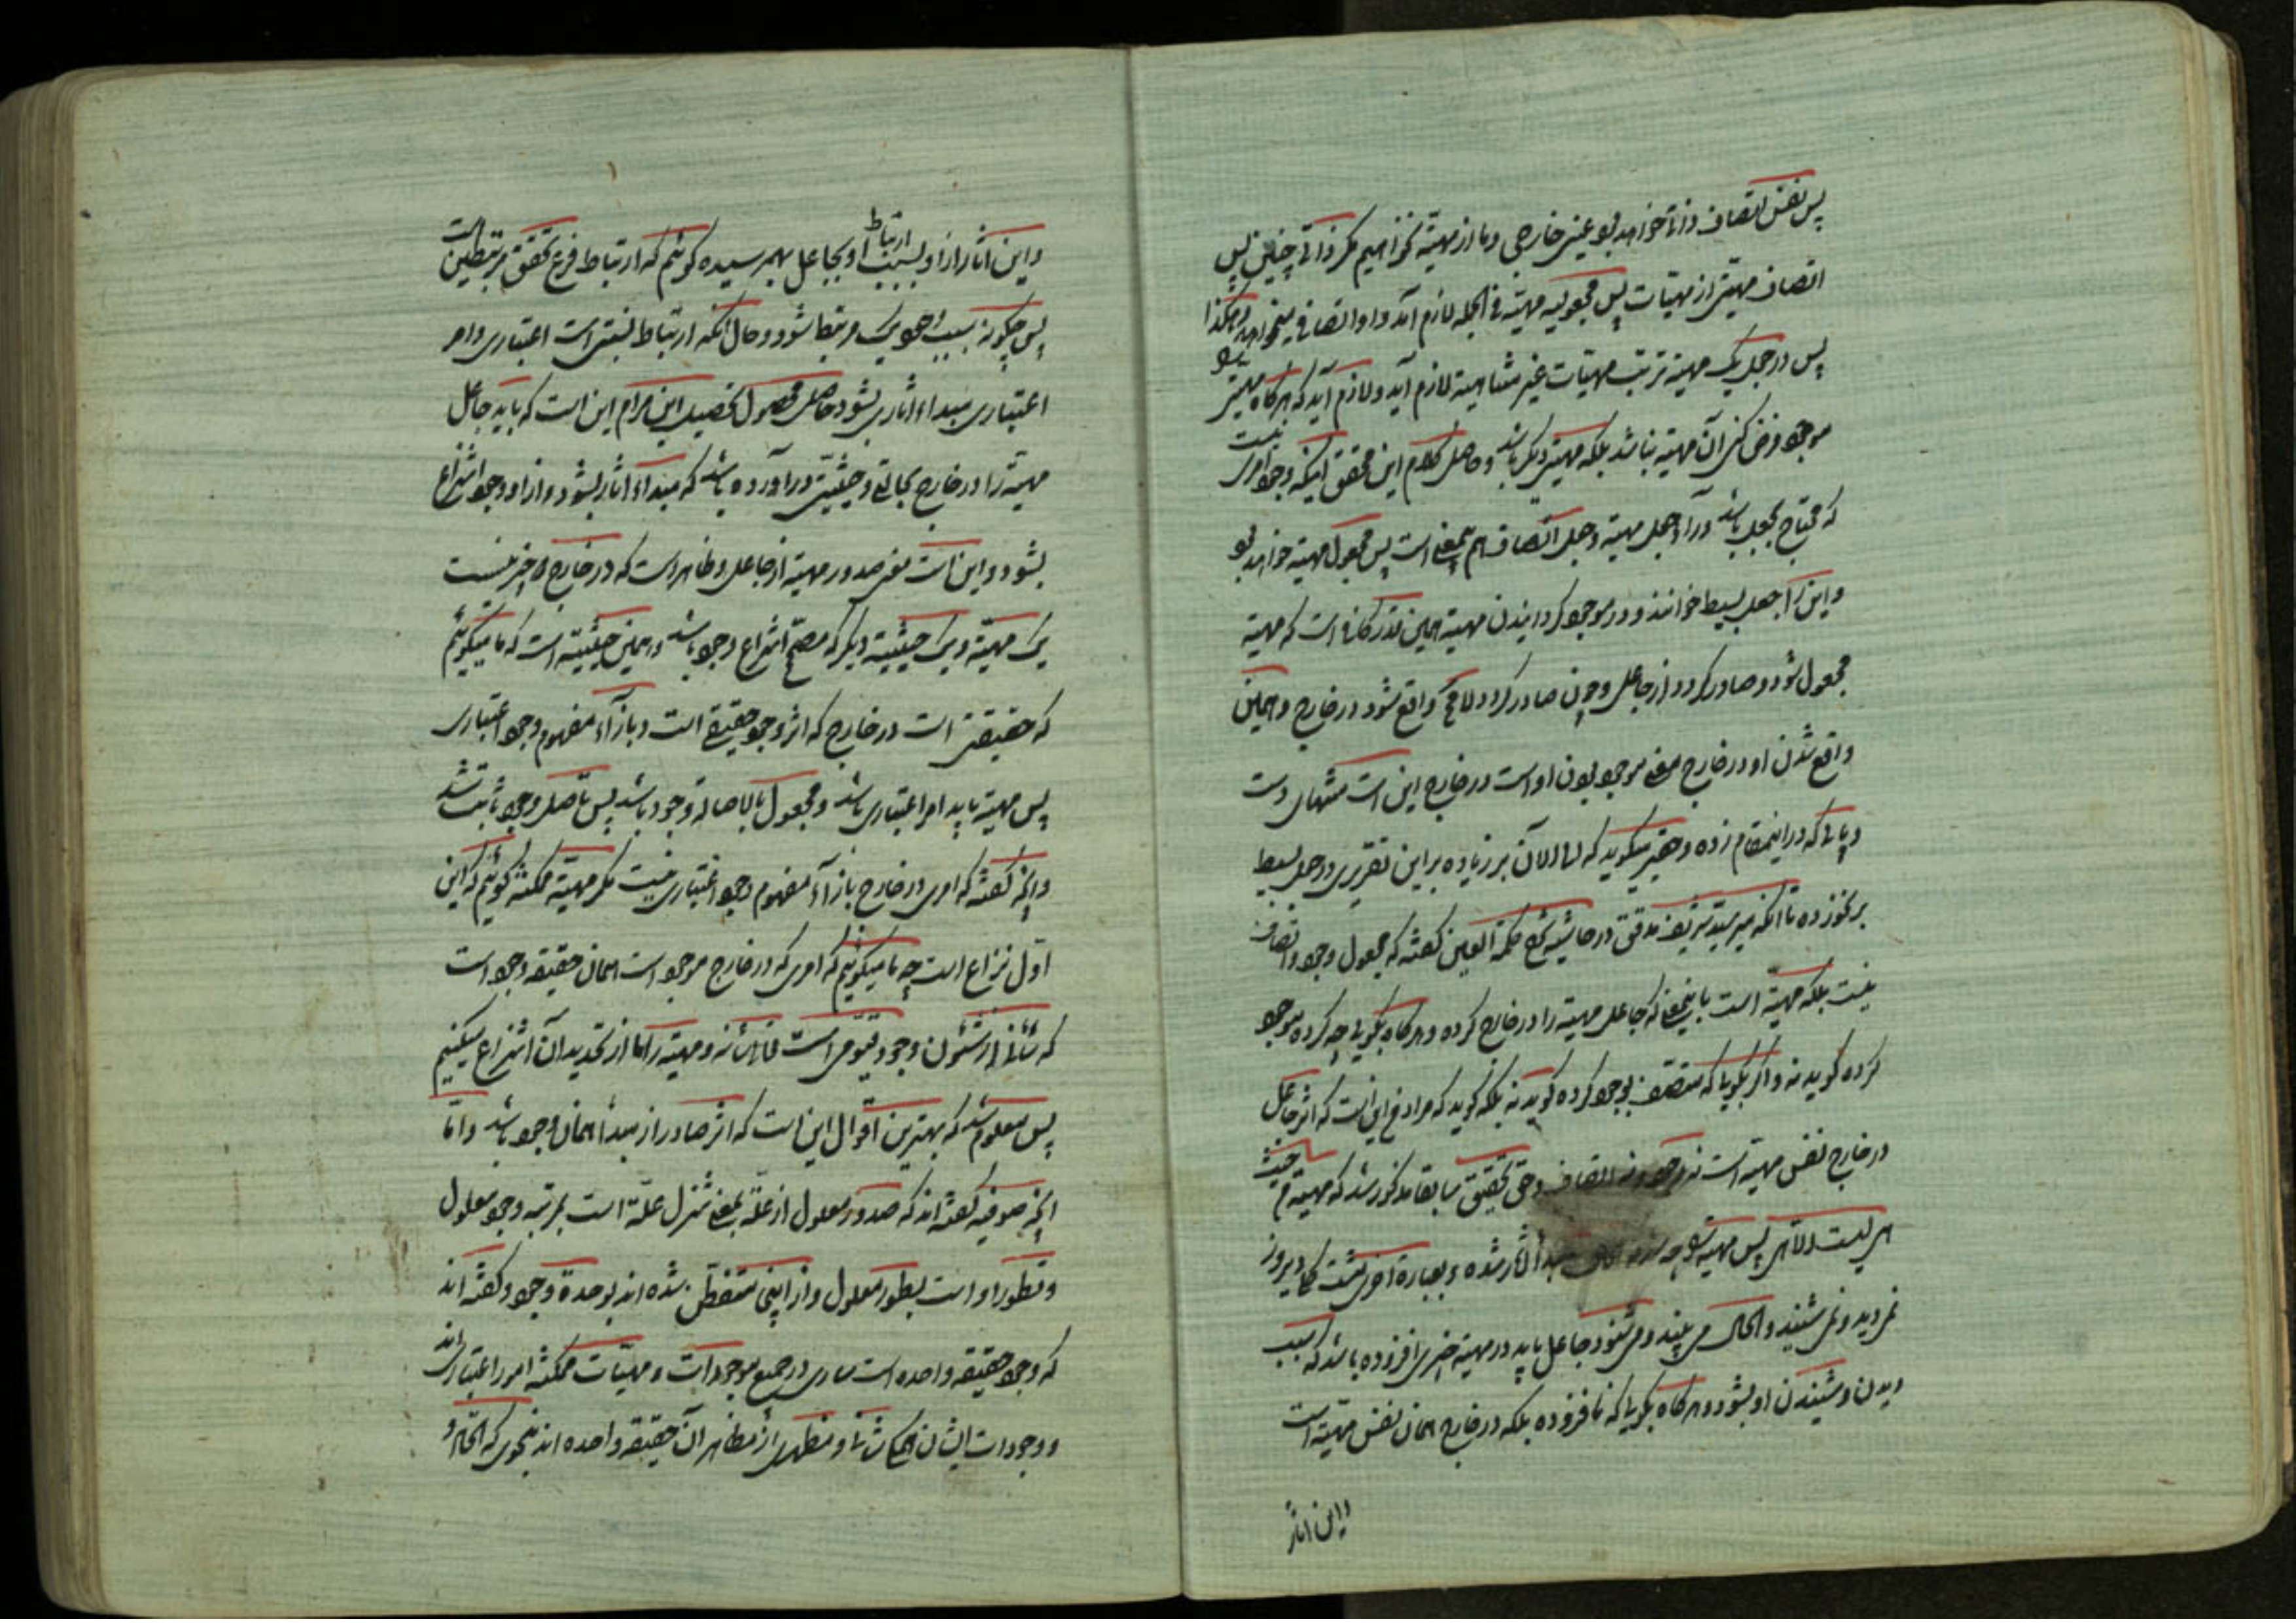 پس نفس اتصاف ذاتا خواهد بود عینی خارجی و ما از مهیة نخواهیم مگر ذاتی چنین پس
اتصاف مهیتی از مهیات پس مجعولیه مهیة فی الجمله لازم آمد و او اتصافی میخواهد و هکذا
پس در جعل یک مهیة ترتب مهیات غیر متناهیه لازم آید و لازم آید که هرگاه مهیتی
موجود فرض کنی آن مهیة نباشد بلکه مهیتی دیگر باشد و حاصل کلام این محقق اینکه وجود امری نیست
که محتاج بجعل باشد و را و جعل مهیة و جعل اتصاف هم بیمعنی است پس مجعول مهیة خواهد بود
و این را جعل بسیط خوانند و در موجود گردانیدن مهیة همین قدر کافی است که مهیة
مجعول شود و صادر گردد از جاعل و چون صادر گردد لامح واقع شود در خارج و همین
واقع شدن او در خارج معنی موجود بودن او است در خارج این است منتهای دست
و پائی که در اینمقام زده و حقیر میگوید که الی الان بر زیاده بر این تقریری در جعل بسیط
برنخورده تا انکه میر سید شریف مدقق در حاشیه شرح حکمة العین گفته که مجعول وجود و اتصاف
نیست بلکه مهیة است باینمعنی که جاعل مهیة را در خارج کرده و هرگاه بگوئی چه کرده موجود
کرده گوید نه و اگر بگویی که متصف بوجود کرده گوید نه بلکه گوید که مراد من این است که اثر جاعل
در خارج نفس مهیة است نه وجود و نه اتصاف و حق تحقیق سابقا مذکور شد که مهیة من حیث
هی لیست الا هی پس مهیة مبدأ آثار شده و بعبارة اخری نسبت کجا دیروز
نمی‌دید و نمی‌شنید و الحال می‌بیند و می‌شنود جاعل باید در مهیة چیزی افزوده باشد که سبب
دیدن و شنیدن او بشود و هرگاه بگویی که نافزوده بلکه در خارج همان نفس مهیة است
و این اثار
و این اثار از او بسبب ارتباط او بجاعل بهم رسیده گوئیم که ارتباط فرع تحقق مرتبطین است
پس چگونه بسبب وجود یک مرتبط شود و حال آنکه ارتباط نسبتی است اعتباری و امر
اعتباری مبداء اثاری نشود حاصل محصول تحصیل این مرام این است که باید جاعل
مهیة را در خارج بحالتی و حیثیتی در آورده باشد که مبداء اثار بشود و از او وجود انتزاع
بشود و این است معنی صدور مهیة از جاعل و ظاهر است که در خارج دو چیز نیست
یک مهیة و یک حیثیة دیگر که مصحح انتزاع وجود باشد و همین حیثیة است که ما میگوئیم
که حقیقتی است در خارج که اثر وجود حقیقی است و بازآء مفهوم وجود اعتباری
پس مهیة باید امر اعتباری باشد و مجعول بالاصالة وجود باشد پس تاصل وجود ثابت شد
و اینکه گفته که امری در خارج بازآء مفهوم وجود اعتباری نیست مگر مهیة ممکنه گوئیم که این
اول نزاع است چه ما میگوئیم که امری که در خارج موجود است همان حقیقه وجود است
که شانی از شئون وجود قیومی است فائض از و مهیة را ما از تحدید آن انتزاع میکنیم
پس معلوم شد که بهترین اقوال این است که اثر صادر از مبدأ همان وجود باشد و اما
اینکه صوفیه گفته‌اند که صدور معلول از علة بمعنی تنزل علة است بمرتبه وجود معلول
و تطور او است بطور معلول و از اینجا متفطن شده اند بوحدة وجود و گفته اند
که وجود حقیقه واحده است ساری در جمیع موجودات و مهیات ممکنه امور اعتباری اند
و وجودات ایشان همگی شانی و مظهری از مظاهر آن حقیقه واحده اند بنحوی که